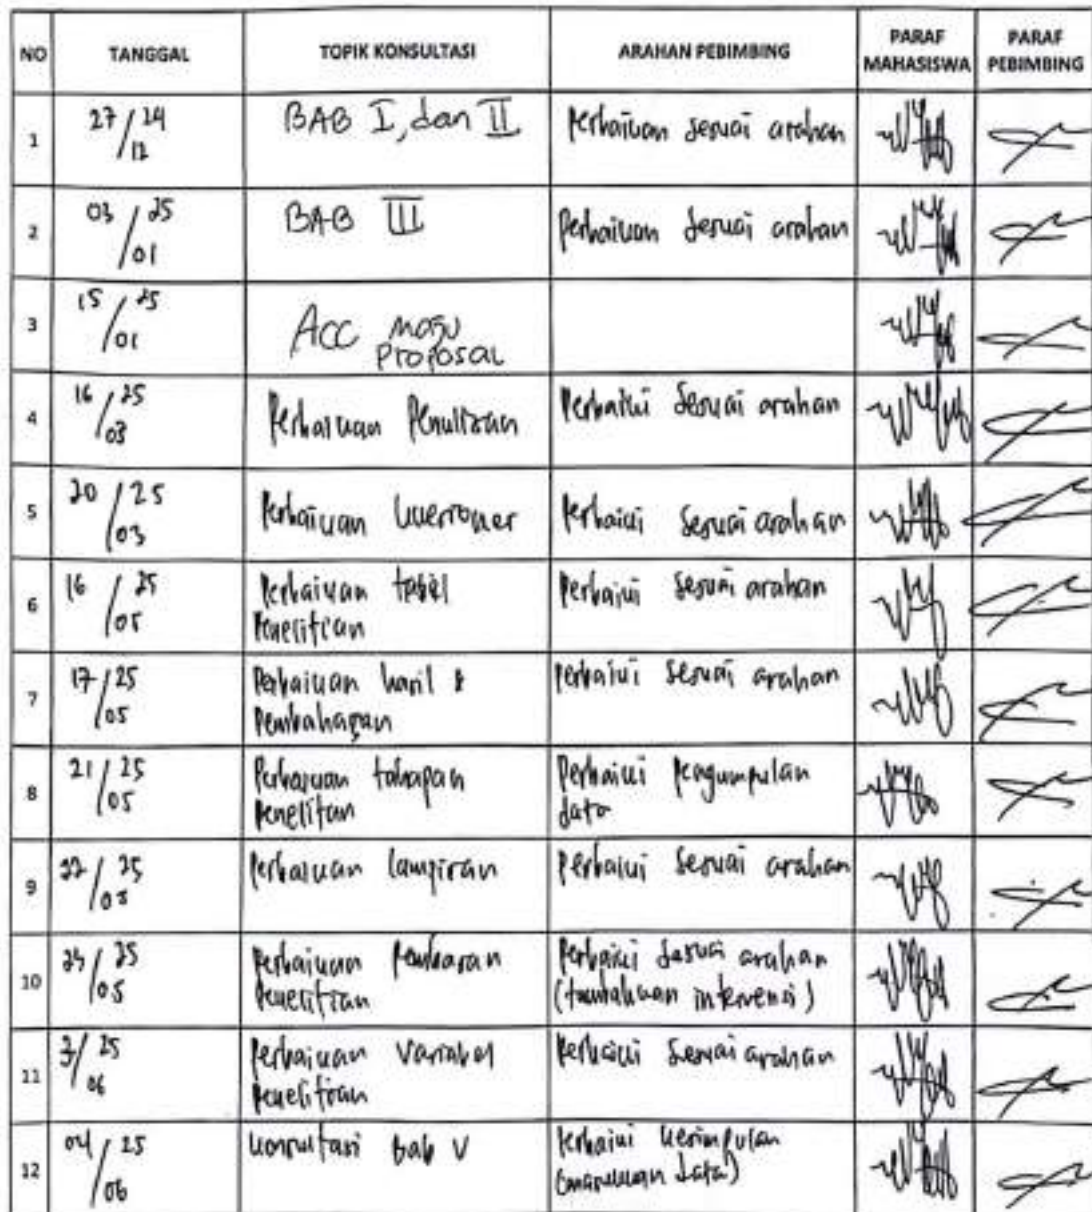 NO TANGGAL TOPIK KONSULTASI ARAHAN PEBIMBING PARAF MAHASISWA PARAF PEBIMBING
1 27/12 24 BAB I, dan II Perbaikan sesuai arahan
2 03/01 25 BAB III Perbaikan sesuai arahan
3 15/01 25 ACC maju
proposal
4 16/03 25 Perbaikan Penulisan Perbaiki sesuai arahan
5 20/03 25 Perbaikan kuesioner Perbaiki sesuai arahan
6 16/05 25 Perbaikan tabel Perbaiki sesuai arahan
Penelitian
7 17/05 25 Perbaikan hasil & Perbaiki sesuai arahan
Pembahasan
8 21/05 25 Perbaikan tahapan Perbaiki Pengumpulan
Penelitian data
9 22/05 25 Perbaikan lampiran Perbaiki sesuai arahan
10 /05 25 Perbaikan Perbaiki sesuai arahan
Penelitian (tambahkan intervensi)
11 3/06 25 Perbaikan Variabel Perbaiki sesuai arahan
Penelitian
12 04/06 25 Konsultasi Bab V Perbaiki kesimpulan
(masukkan data)